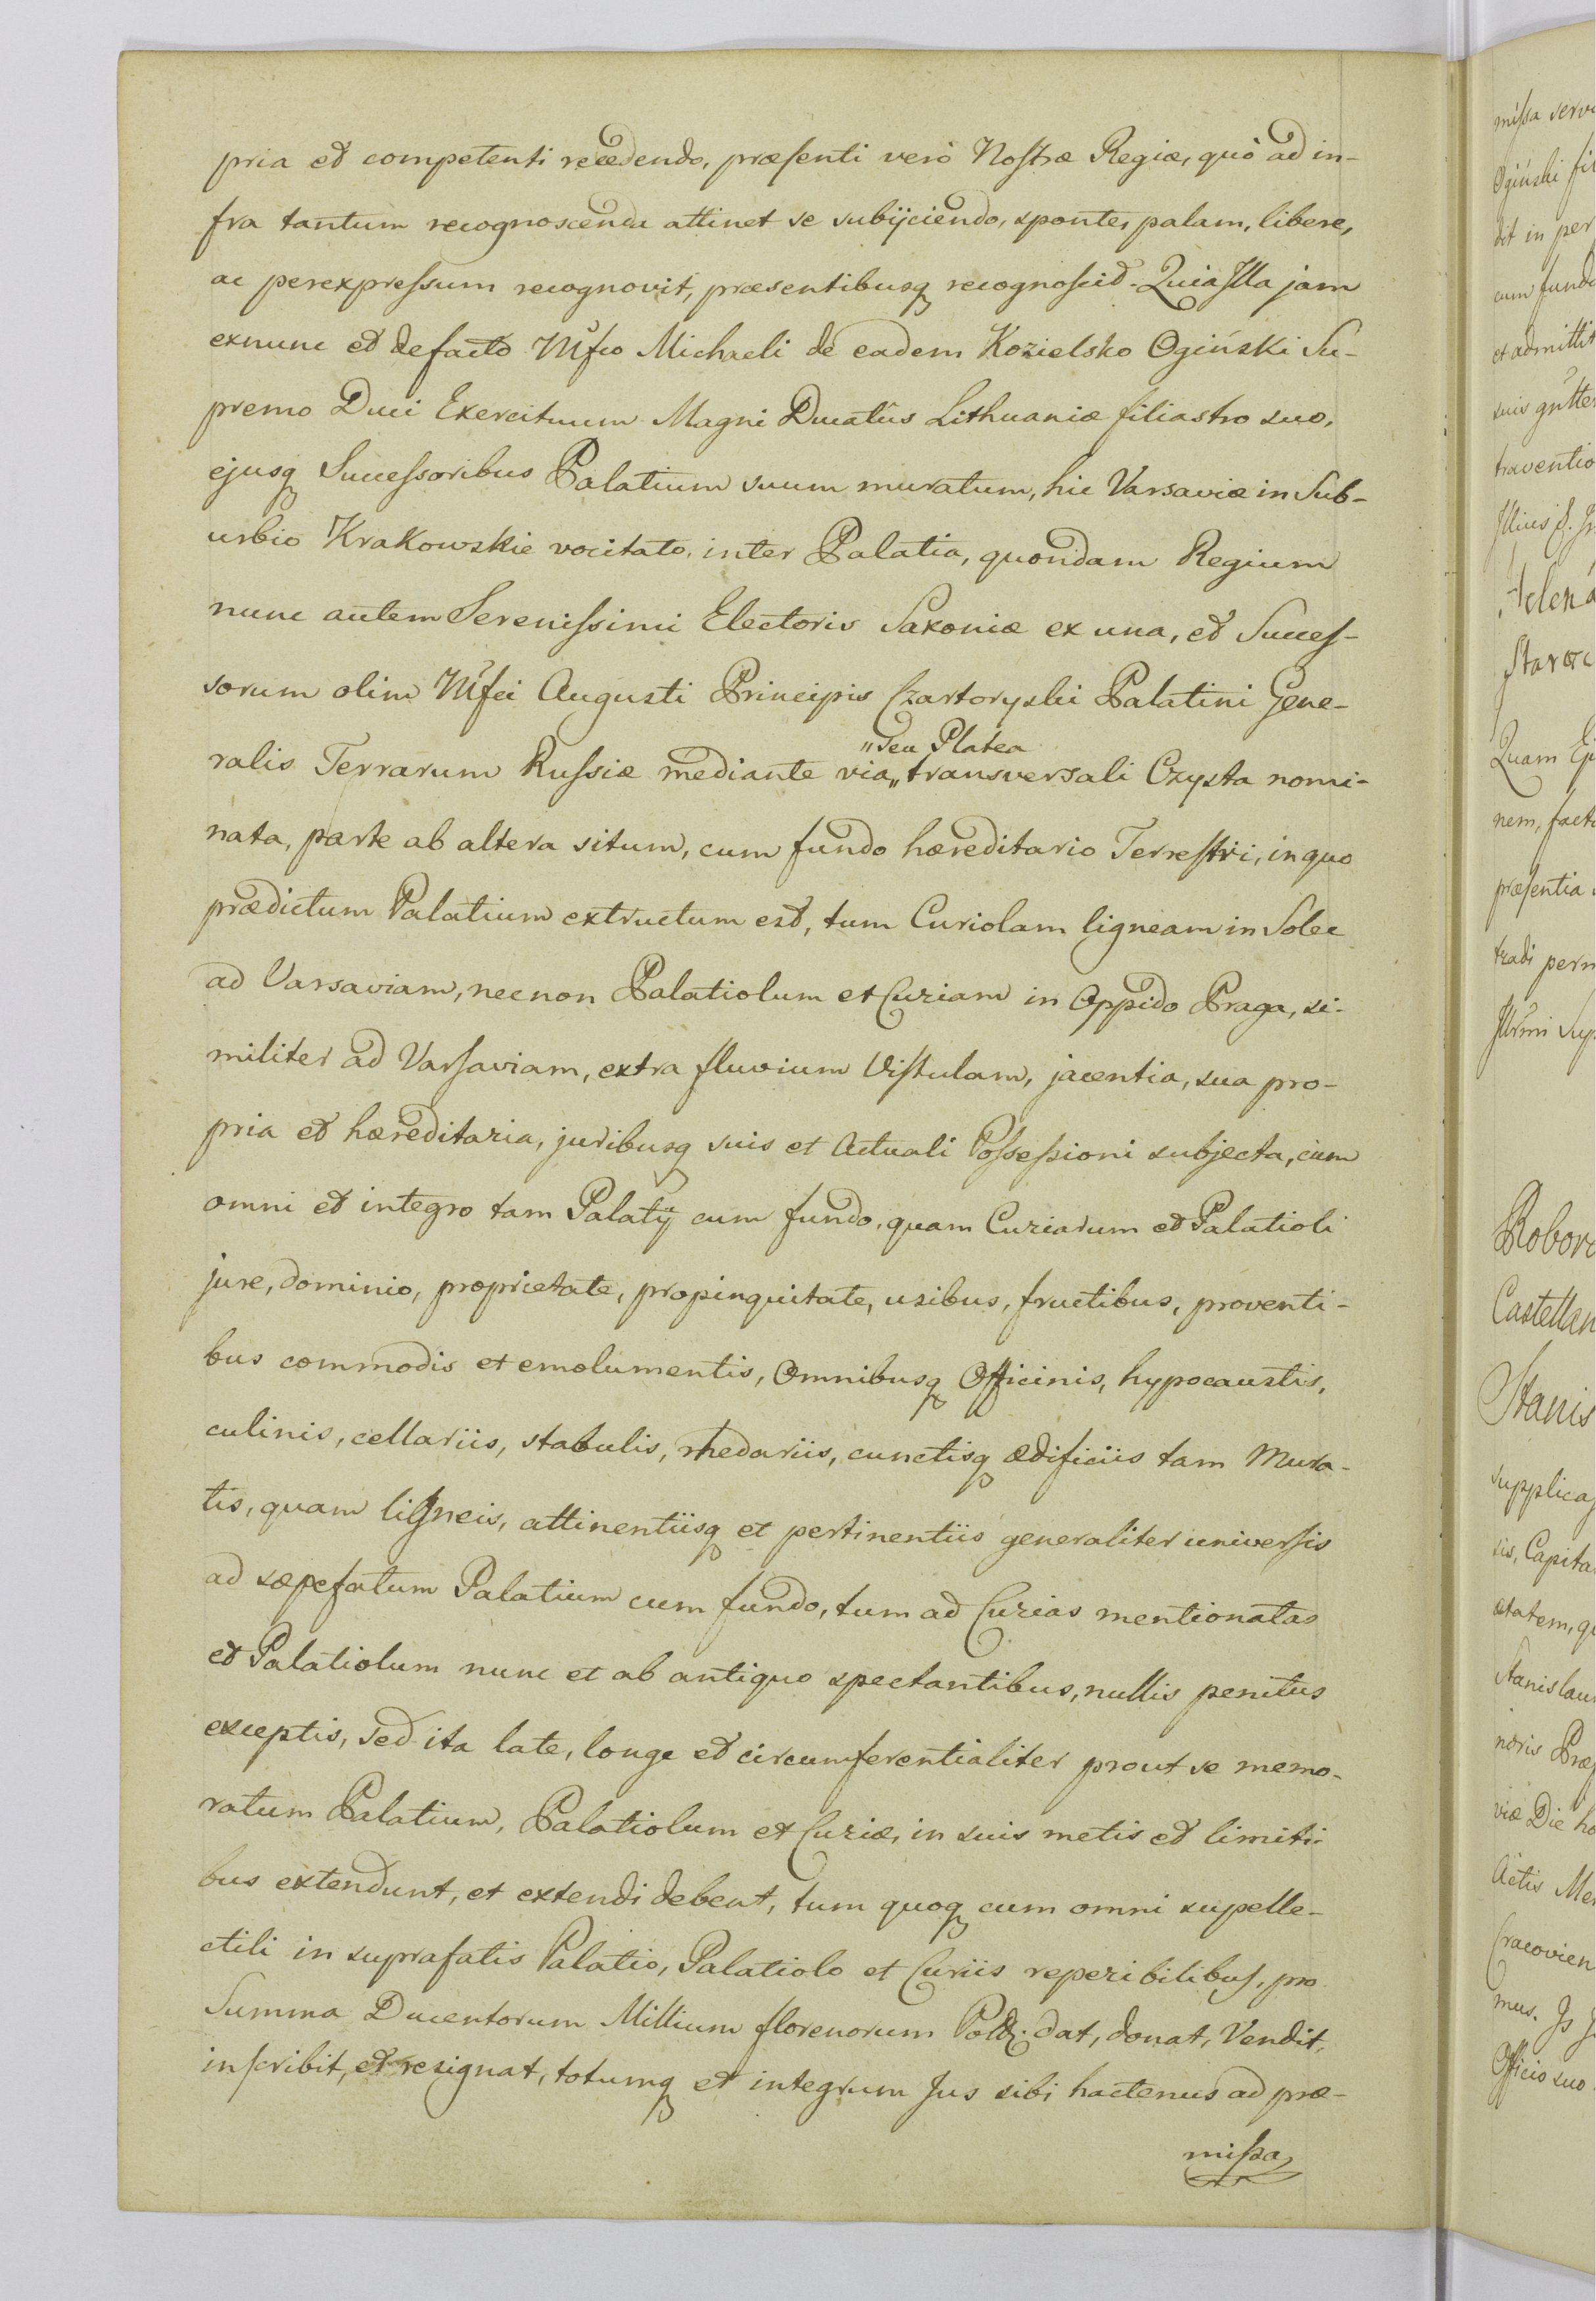 pria et competenti recedendo, præſenti verò Noſtræ Regiæ, quò ad in-
fra tantum recognoscenda attinet se subijciendo, sponte, palam, libere,
ac perexpreſsum recognovit, præsentibusq recognoſcit. Quia Illa jam
exnunc et defacto Mfco Michaeli de eadem Kozielsko Ogiński Su-
premo Duci Exercituum Magni Ducatûs Lithuaniæ filiastro suo,
ejusq Succeſsoribus Palatium suum muratum, hic Varsaviæ in Sub-
urbio Krakowskie vocitato, inter Palatia, quondam Regium
nunc autem Sereniſsimi Electoris Saxoniæ ex una, et Succeſ-
sorum olim Mfci Augusti Principis Czartoryski Palatini Gene-
„seu Platea
ralis Terrarum Ruſsiæ mediante via„ transversali Czysta nomi-
nata, parte ab altera situm, cum fundo hæreditario Terreſtri, in quo
prædictum Palatium extructum est, tum Curiolam ligneam in Solec
ad Varsaviam, necnon Palatiolum et Curiam in Oppido Praga, si-
militer ad Varſaviam, extra fluvium Viſtulam, jacentia, sua pro-
pria et hæreditaria, juribusq suis et Actuali Poſseſsioni subjecta, cum
omni et integro tam Palatij cum fundo, quam Curiarum et Palatioli
jure, dominio, proprietate, propinquitate, usibus, fructibus, proventi-
bus commodis et emolumentis, Omnibusq Officinis, hypocaustis,
culinis, cellariis, stabulis, rhedariis, cunctisq ædificiis tam Mura-
tis, quam ligneis, attinentiisq et pertinentiis generaliter univerſis
ad sæpefatum Palatium cum fundo, tum ad Curias mentionatas
et Palatiolum nunc et ab antiquo spectantibus, nullis penitus
exceptis, sed ita late, longe et circumferentialiter prout se memo-
ratum Palatium, Palatiolum et Curiæ, in suis metis et limiti-
bus extendunt, et extendi debent, tum quoq cum omni supelle-
ctili in suprafatis Palatio, Palatiolo et Curiis reperibilibuſ, pro
Summa Ducentorum Millium florenorum Pold. dat, donat, Vendit,
inſcribit, et resignat, totumq et integrum Jus sibi hactenus ad præ-
miſsa
miſsa
Ogiński
dit in per
cum
et admittit
suis
Helena
Quam
nem,
præſentia
tradi
Stanis
supplica
Capita
ætatem,
Stanislau
viæ Die
Actis
Cracovien
mus.
Officio suo